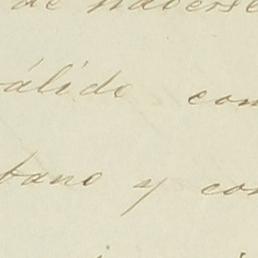 de haberse
álido con
bano y con